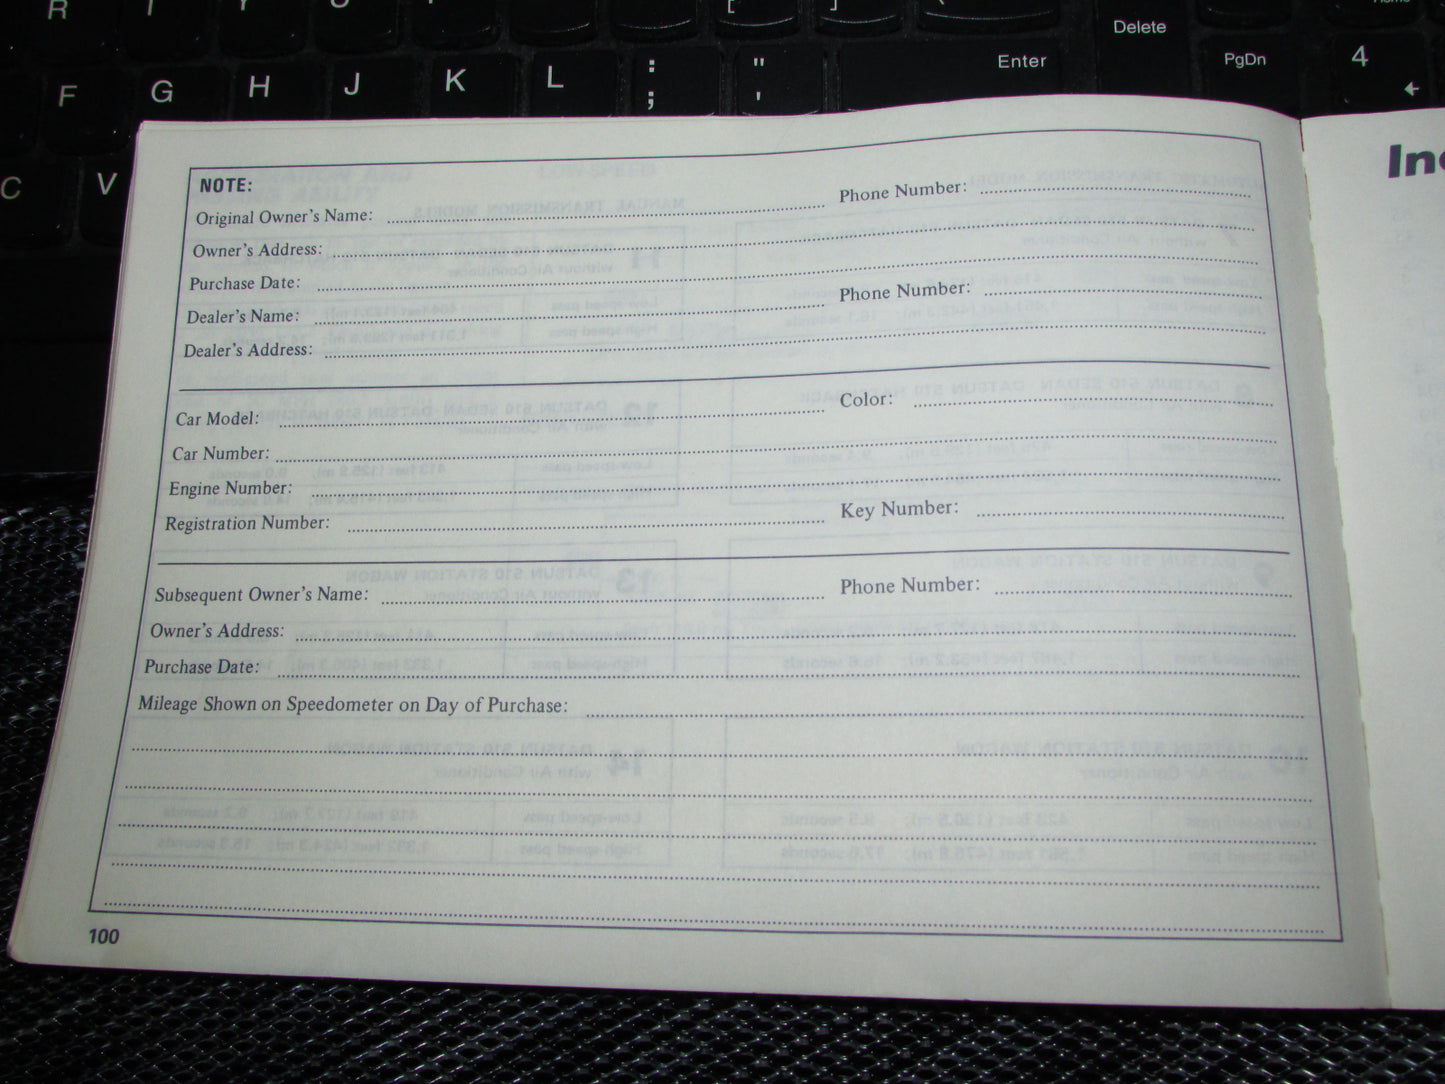 R T Y U [ ]
Delete Home
F G H J K L : ; " ' Enter PgDn 4
C V
NOTE:
Original Owner's Name: Phone Number:
Owner's Address:
Purchase Date:
Dealer's Name: Phone Number:
Dealer's Address:
Car Model: Color:
Car Number:
Engine Number:
Registration Number: Key Number:
Subsequent Owner's Name: Phone Number:
Owner's Address:
Purchase Date:
Mileage Shown on Speedometer on Day of Purchase:
100